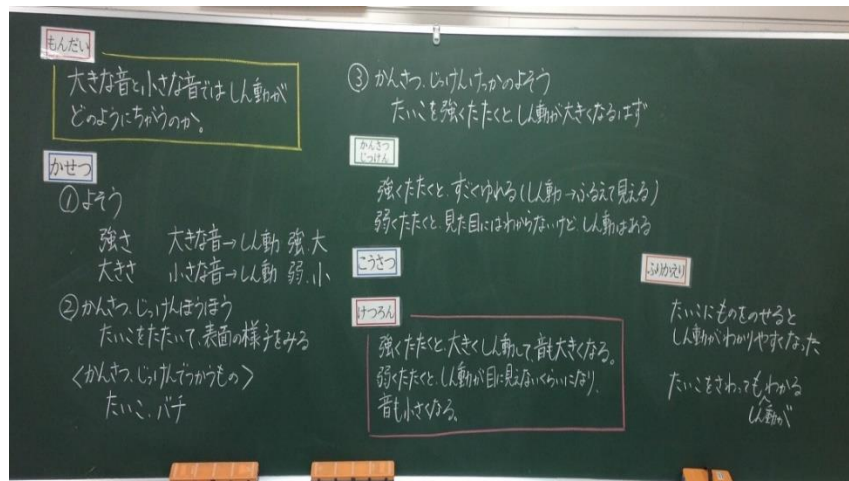 もんだい
大きな音と小さな音ではしん動が
どのようにちがうのか。
かせつ
①よそう
強さ 大きな音→しん動 強.大
大きさ 小さな音→しん動 弱.小
②かんさつ、じっけんほうほう
たいこをたたいて、表面の様子をみる
〈かんさつ、じっけんでつかうもの〉
たいこ、バチ
③かんさつ、じっけんけっかのよそう
たいこを強くたたくと、しん動が大きくなるはず
かんさつ
じっけん
強くたたくと、すごくゆれる(しん動→ふるえて見える)
弱くたたくと、見た目にはわからないけど、しん動はある
こうさつ
けつろん
強くたたくと、大きくしん動して、音も大きくなる。
弱くたたくと、しん動が目に見えないくらいになり、
音も小さくなる。
ふりかえり
たいこにものをのせると
しん動がわかりやすくなった
たいこをさわってもわかる
しん動が